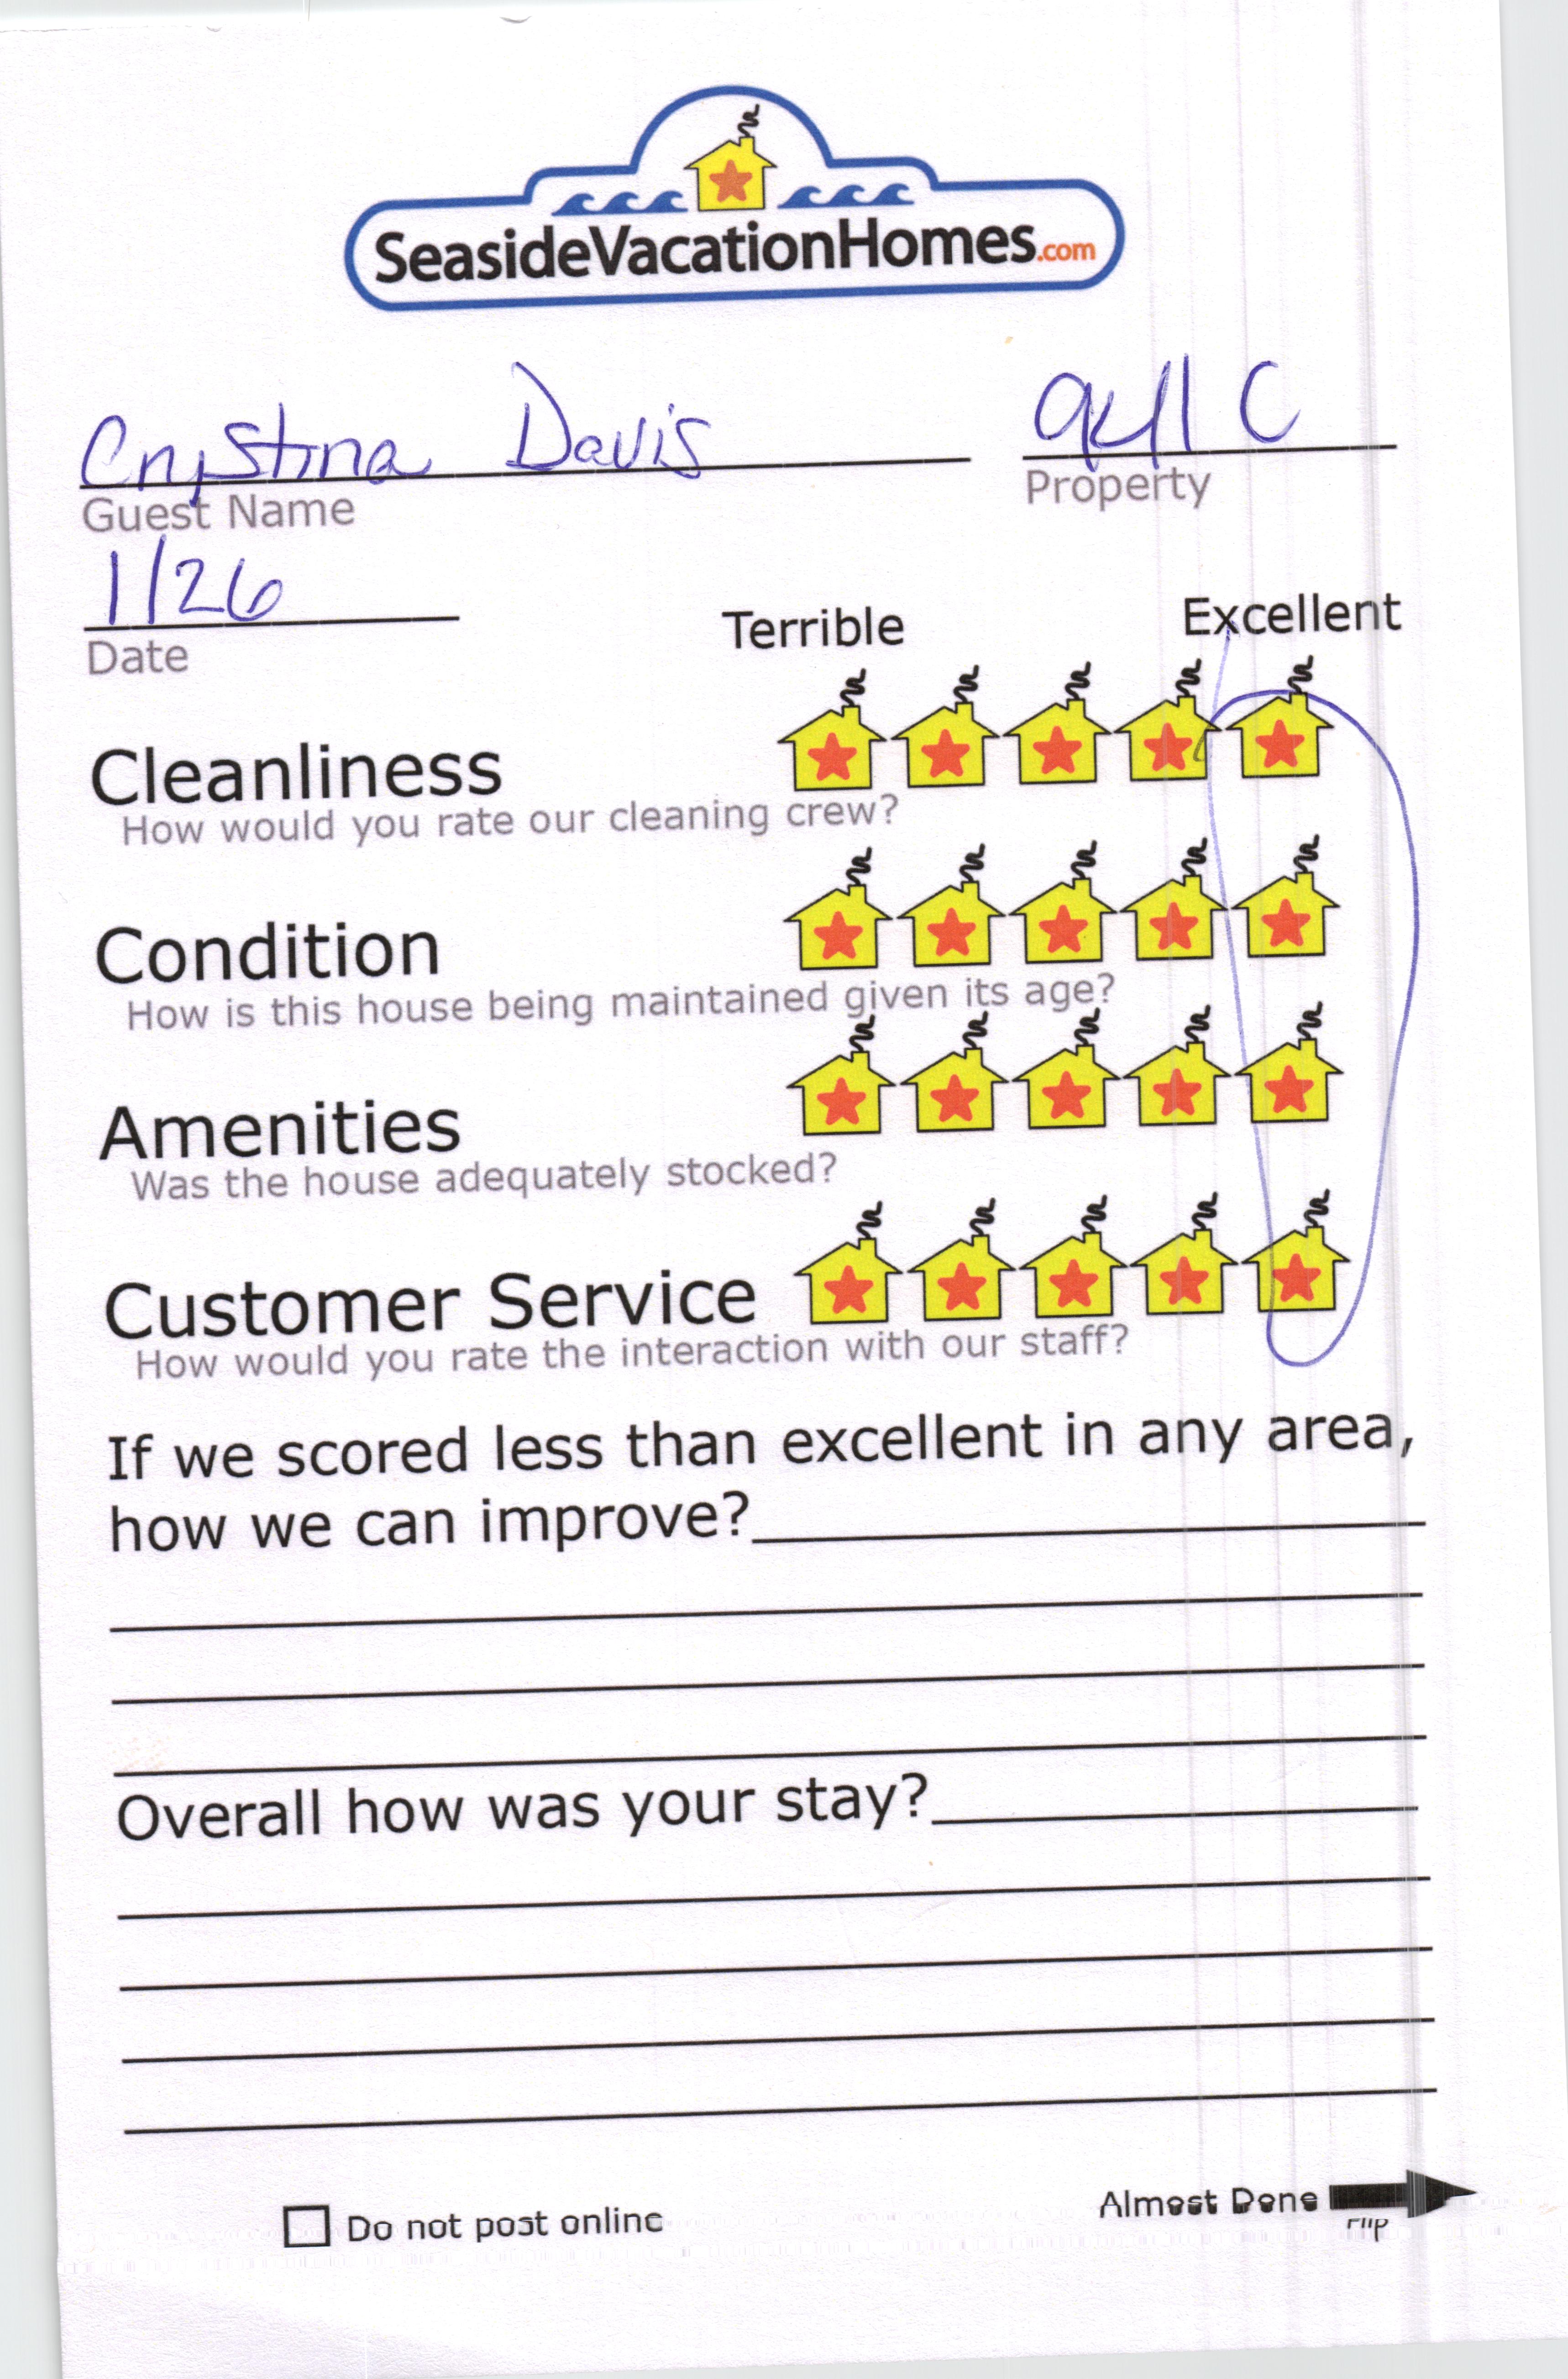 SeasideVacationHomes.com
Crystina Davis 9411 C
Guest Name Property
1/26
Date
Terrible Excellent
Cleanliness
How would you rate our cleaning crew?
Condition
How is this house being maintained given its age?
Amenities
Was the house adequately stocked?
Customer Service
How would you rate the interaction with our staff?
If we scored less than excellent in any area,
how we can improve?
Overall how was your stay?
Do not post online
Almost Done
Flip